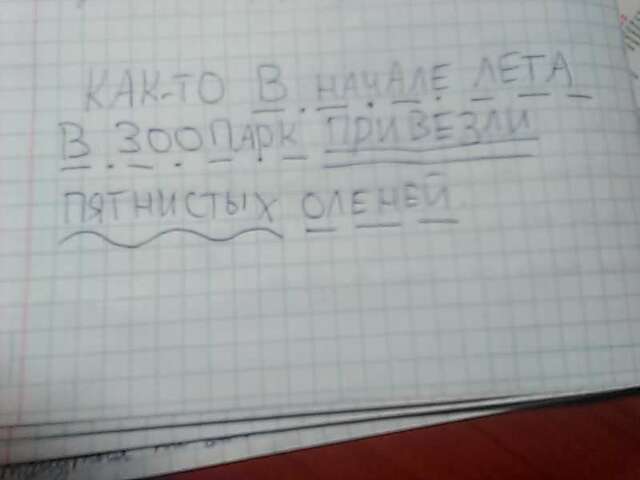 КАК-ТО В НАЧАЛЕ ЛЕТА
В ЗООПАРК ПРИВЕЗЛИ
ПЯТНИСТЫХ ОЛЕНЕЙ